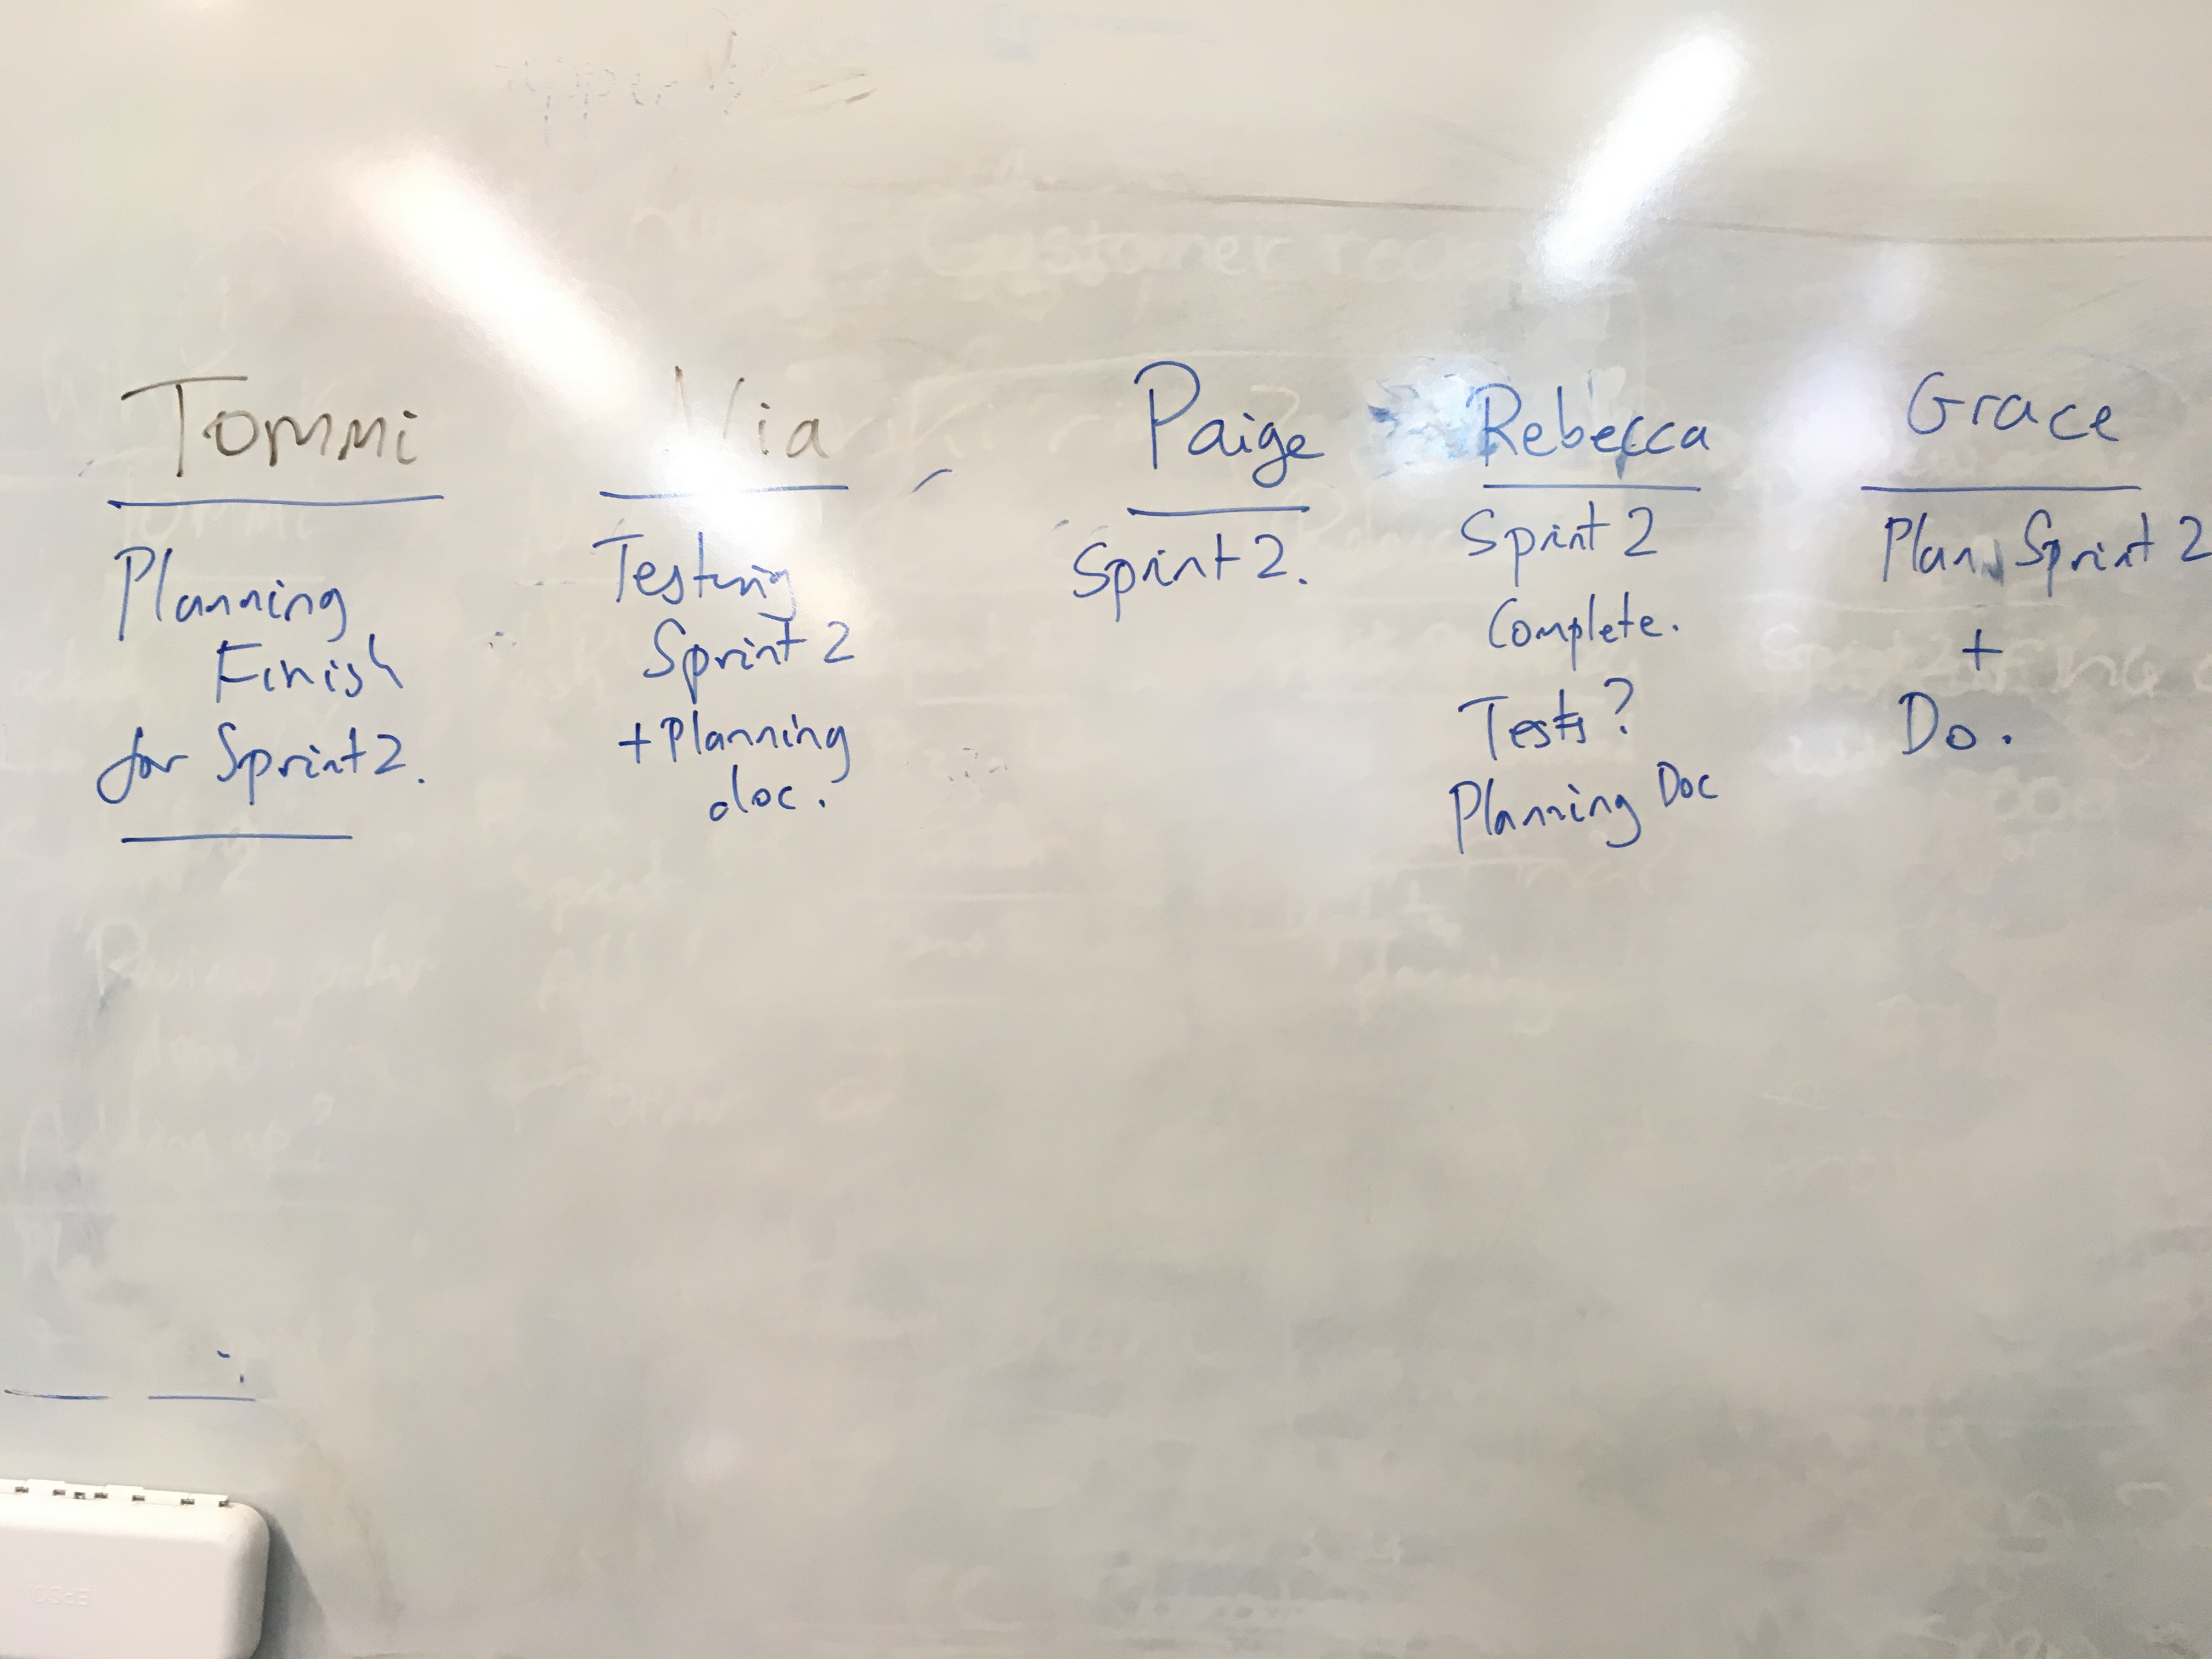 Tommi
Planning
Finish
for Sprint 2.
Testing
Sprint 2
+ Planning
doc.
Paige
Sprint 2.
Rebecca
Sprint 2
Complete.
Tests?
Planning Doc
Grace
Plan Sprint 2
+
Do.
Customer